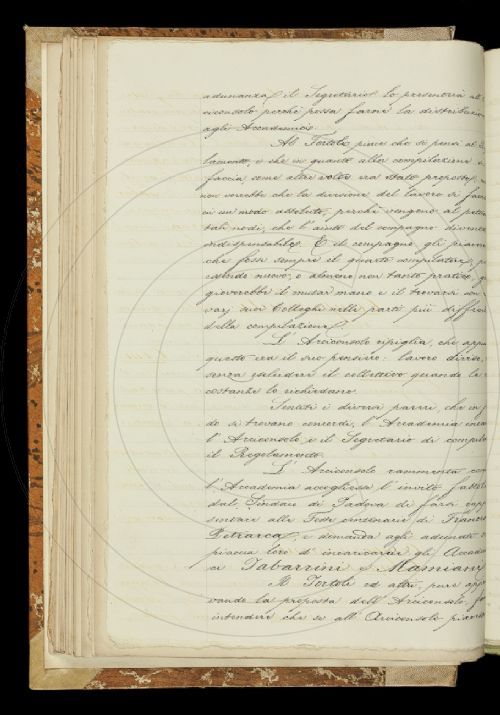 adunanza, il Segretario lo presenterà all'
Arciconsolo perchè possa farne la distribuzione
agli Accademici.
Al Tortoli piace che si pensi al
e che in quanto alla compilazione si
faccia come altre volte era stato proposto,
non vorrebbe che la divisione del lavoro si
in un modo assoluto, perchè vengono al
tali nodi, che l'aiuto del compagno
indispensabile. E il compagno gli
che fosse sempre il quarto compilatore,
essendo nuovo, o almeno non tanto pratico,
gioverebbe il mutar mano e il trovarsi con
varj suoi Colleghi nelle parti più
della compilazione.
L'Arciconsolo ripiglia, che
questo era il suo pensiero: lavoro diviso,
senza escludere il collettivo quando le
costanze lo richiedano.
Sentiti i diversi pareri, che in
do si trovano concordi, l'Accademia
l'Arciconsolo e il Segretario di
il Regolamento.
L'Arciconsolo rammenta come
l'Accademia accogliesse l'invito
dal Sindaco di Padova di farsi
sentare alle Feste centenarie di
Petrarca, e domanda agli adunati
piaccia loro d'incaricare gli
ci Tabarrini e Mamiani.
Il Tortoli ed altri, pure
vando la proposta dell'Arciconsolo,
intendere che se all'Arciconsolo